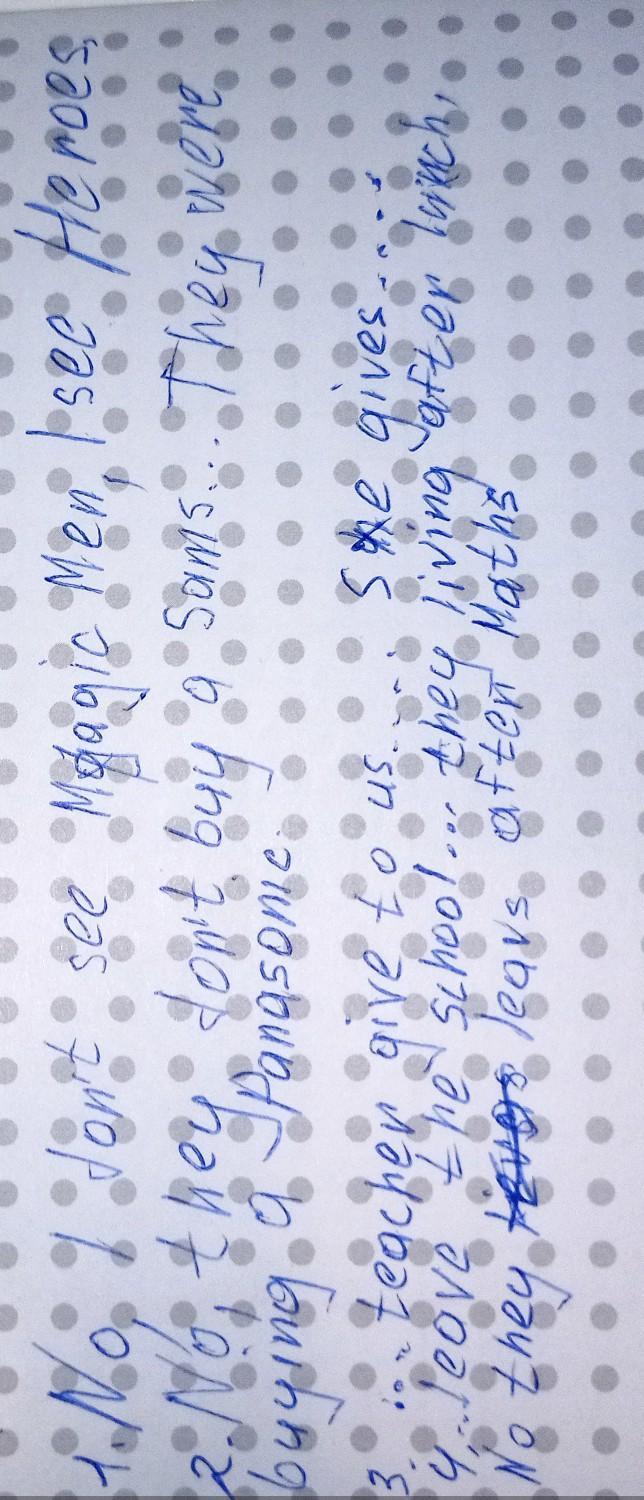 1. No, I don't see Magic Men, I see Heroes,
2. No, they don't buy a Sams... They were
buying a Panasonic.
3. ... teacher give to us..... She gives.....
4. ... leave the school... they living after lunch,
No they leavs after Maths